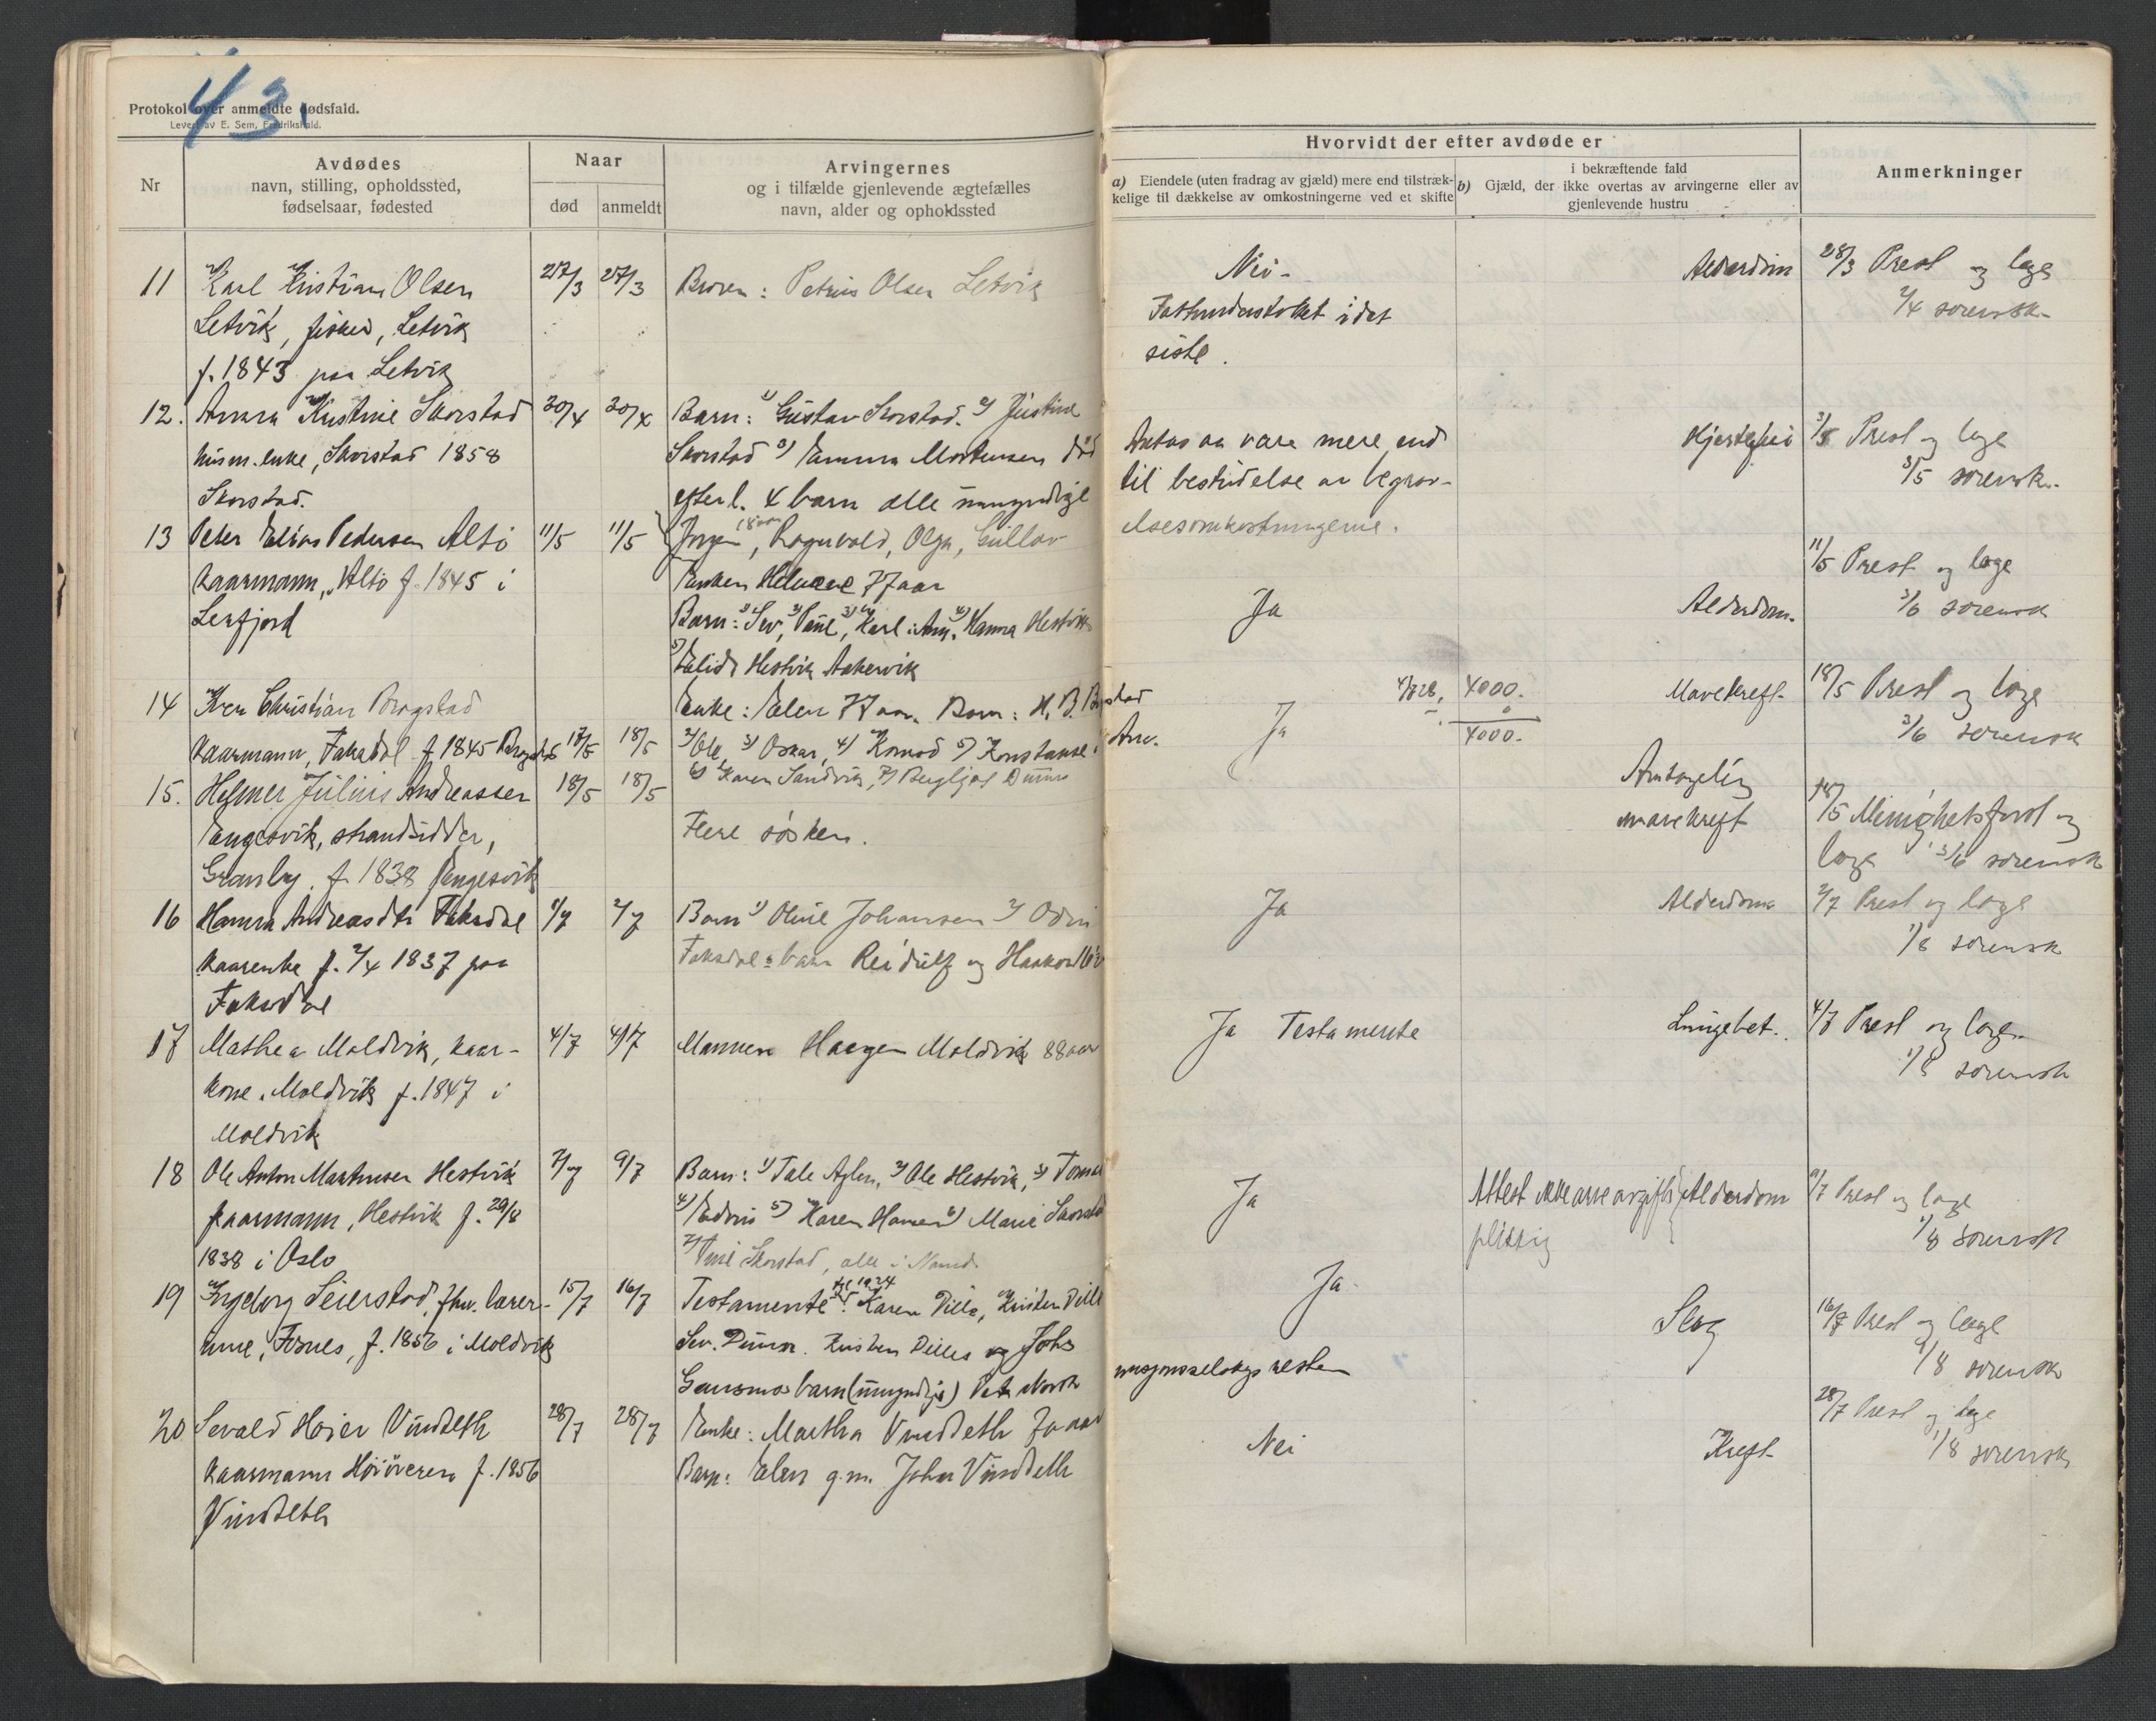 43.
Protokol over anmeldte dødsfald.
Levert av E. Sem, Fredrikshald.
Nr
Avdødes
navn, stilling, opholdssted,
fødselsaar, fødested
Naar
død
anmeldt
Arvingernes
og i tilfælde gjenlevende ægtefælles
navn, alder og opholdssted
Hvorvidt der efter avdøde er
a) Eiendele (uten fradrag av gjæld) mere end tilstræk-
kelige til dækkelse av omkostningerne ved et skifte
i bekræftende fald
b) Gjæld, der ikke overtas av arvingerne eller av
gjenlevende hustru
Anmerkninger
11 Karl Kristian Olsen 27/3 27/3 Broren: Petrius Olsen Letvik Nei- Alderdom 28/3 Prest og læge
Letvik, fisker, Letvik Fattunderstøttet i det 2/4 sorensk.
f. 1843 paa Letvik siste.
12. Anna Kristine Skorstad 30/4 30/4 Barn: 1) Gustav Skorstad. 2) Justine
husm. enke, Skorstad 1858 Skorstad 3) Emma Mortensen død Antas aa være mere end Hjertefeil 3/5 Prest og læge
Skorstad. efterl. 4 barn alle umyndige til bestridelse av begrav- 3/5 sorensk.
13 Peter Elias Pedersen Altø 11/5 11/5 Jørgen 18 aar, Ragnvald, Olga, Gullav elsesomkostningerne.
kaarmann, Altø f. 1845 i Enken Helmine 77 aar 11/5 Prest og læge
Lerfjord Barn: 1) Sev, 2) Paul, 3) Karl i Am. 4) Hanna Hestvik Ja Alderdom. 3/6 sorensk
5) Elida Hestvik Aakervik
14 Iver Christian Brogstad Enke: Elen 77 aar. Barn: H. B. Brogstad 4000. Mavekreft. 18/5 Prest og læge
kaarmann, Faksdal f. 1845 Brogstad 17/5 18/5 2) Ole, 3) Oskar, 4) Konrad 5) Konstanse i Am. Ja 4000. 3/6 sorensk
15. Helmer Julius Andreassen 18/5 18/5 6) Karen Sandvik, 7) Bergljot Duun
Engesvik, strandsidder, Flere søsken. Antagelig mavekreft 18/5 Menighetsforst og
Granby. f. 1838 Engesvik læge 3/6 sorensk
16 Hanna Andreasdtr Faksdal 1/7 2/7 Barn 1) Oline Johansen 2) Odin Ja Alderdom 2/7 Prest og læge
kaarenke f. 2/4 1837 paa Faksdals barn Reidulf og Haakon 1/8 sorensk
Faksdal
17 Mathea Moldvik, kaar- 4/7 4/7 Mannen Haagen Moldvik 88 aar Ja Testamente Lungebet. 4/7 Prest og læge
kone. Moldvik f. 1847 i 1/8 sorensk
Moldvik
18 Ole Anton Martinsen Hestvik 7/7 9/7 Barn: 1) Tale Aglen, 2) Ole Hestvik, 3) Ja Attest ikke arveavgifts- Alderdom 9/7 Prest og læge
kaarmann, Hestvik f. 29/8 4) Edvin 5) Karen Hansen 6) Marie Skorstad pliktig 1/8 sorensk
1838 i Oslo 7) Skorstad, alle i Namd.
19 Ingeborg Seierstad, fhv. lærer- 15/7 16/7 Testamente af 1924: Karen Dille, Kristen Dille Ja-
inne, Fosnes, f. 1856 i Moldvik Sev. Duun. Kristen Dilles og Johs Slag 16/7 Prest og læge
Gansmos barn (umyndige) Det Norske misjonsselskap resten 1/8 sorensk
20 Sevald Høier Vindseth 28/7 28/7 Enke: Martha Vindseth aar Nei Kreft 28/7 Prest og læge
kaarmann Høiøveren f. 1856 Barn: Elen g.m. John Vindseth 1/8 sorensk
Vindseth